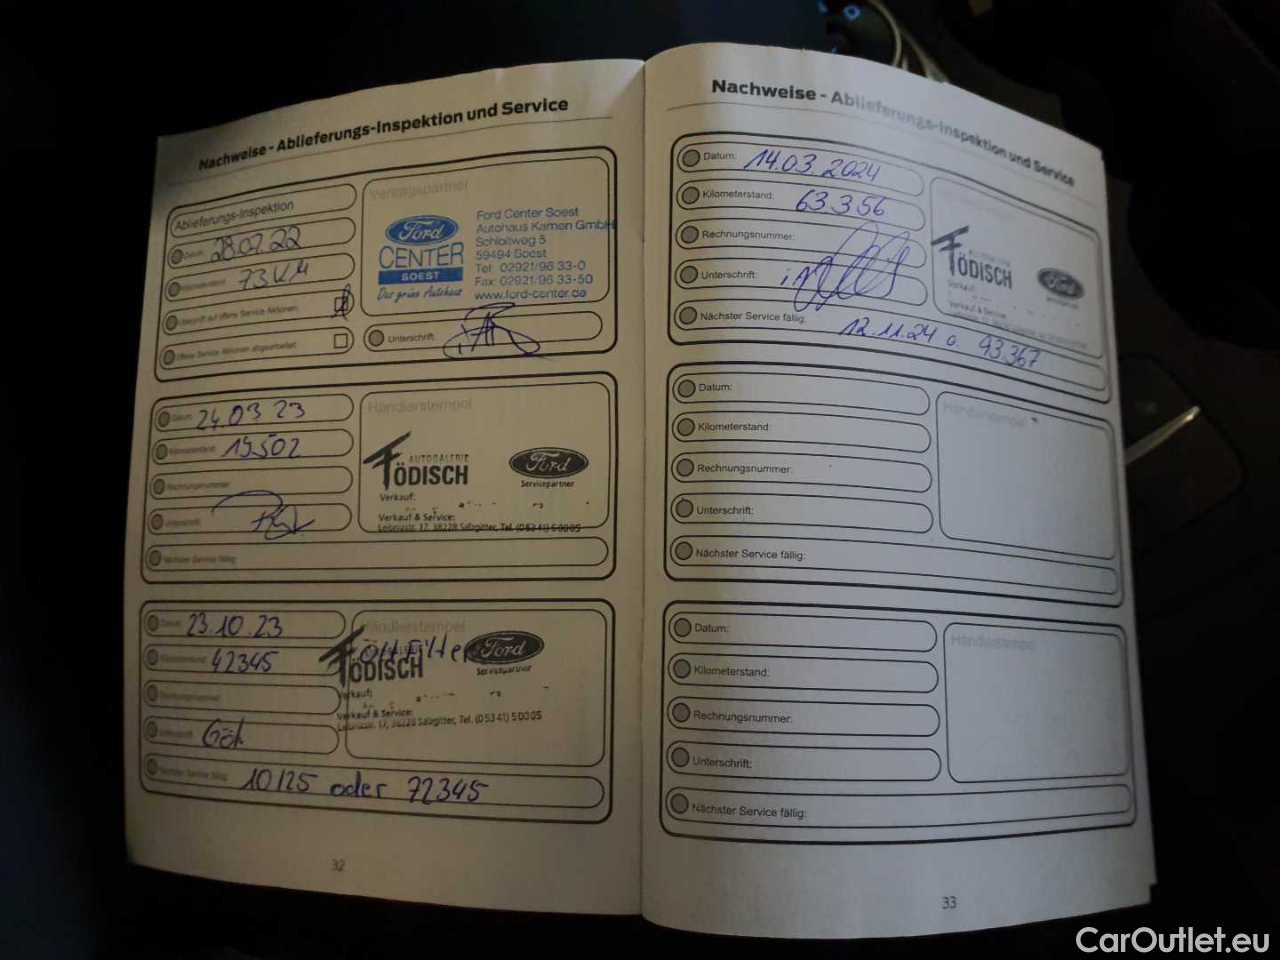 Nachweise - Ablieferungs-Inspektion und Service
Ablieferungs-Inspektion
Datum: 28.07.22
73 KM
Überprüft auf offene Service Aktionen:
Offene Service Aktionen abgearbeitet:
Vertragspartner
Ford
CENTER
SOEST
Das grüne Autohaus
Ford Center Soest
Autohaus Kamen GmbH
59494 Soest
Tel: 02921/96 33-0
Fax: 02921/96 33-50
www.ford-center.de
Unterschrift:
Datum: 24.03.23
Kilometerstand: 19502
Rechnungsnummer:
Unterschrift:
Nächster Service fällig:
Händlerstempel
AUTOGALERIE
FÖDISCH
Ford
Servicepartner
Verkauf:
Verkauf & Service:
38228 Salzgitter, Tel. (0 53 41) 5 00 05
Datum: 23.10.23
Kilometerstand: 42345
Rechnungsnummer:
Unterschrift:
Nächster Service fällig: 10/25 oder 72345
Händlerstempel
Öl+Filter
FÖDISCH
Ford
Servicepartner
Verkauf:
Verkauf & Service:
38228 Salzgitter, Tel. (0 53 41) 5 00 05
32
Nachweise - Ablieferungs-Inspektion und Service
Datum: 14.03.2024
Kilometerstand: 63356
Rechnungsnummer:
Unterschrift:
Nächster Service fällig: 12.11.24 o. 93367
FÖDISCH
Ford
Verkauf:
Verkauf & Service
Datum:
Kilometerstand:
Rechnungsnummer:
Unterschrift:
Nächster Service fällig:
Händlerstempel
Datum:
Kilometerstand:
Rechnungsnummer:
Unterschrift:
Nächster Service fällig:
Händlerstempel
33
CarOutlet.eu